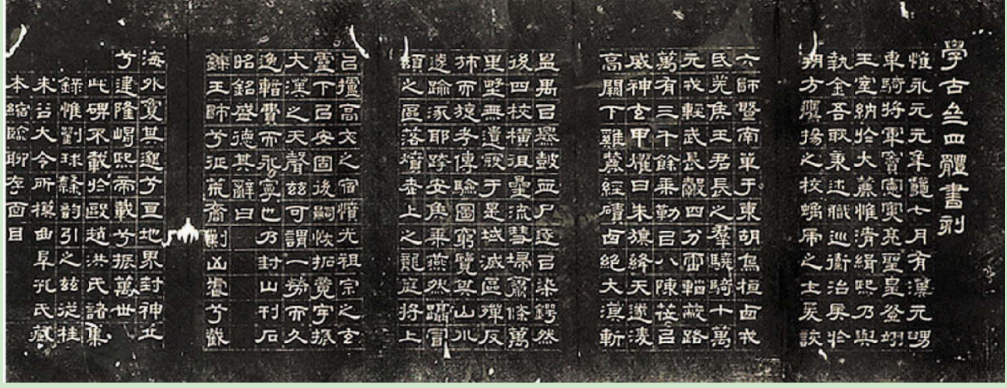 學古亝四體書刻
惟永元元年龝七月有漢元舅
車騎將軍竇憲寅亮聖登翊
王室納於大麓惟清緝熙乃與
執金吾耿秉述職巡御治兵於
朔方鷹揚之校螭虎之士爰該
六師暨南單于東胡烏桓西戎
氐羌侯王君長之羣驍騎十萬
元戎輕武長轂四分雷輜蔽路
萬有三千餘乘勒㠯八陳莅㠯
威神玄甲耀日朱旗絳天遂凌
高闕下雞鹿經磧鹵絕大漠斬
昷禺㠯釁鼓血尸逐㠯染鍔然
後四校橫徂星流彗埽蕭條萬
里野無遺寇于是域滅區殫反
旆而旋考傳驗圖窮覽其山川
遂踰涿邪跨安侯乘燕然躡冒
頓之區落焚老上之龍庭將上
㠯攄高文之宿憤光祖宗之玄
靈下㠯安固後嗣恢拓竟宇振
大漢之天聲茲可謂一勞而久
逸暫費而永寧也乃封山刊石
昭銘盛德其辭曰
鑠王師兮征荒裔剿凶虐兮
海外夐其邈兮亘地界封神丘
兮建隆嵑熙帝載兮振萬世
此碑不載於歐趙洪氏諸集
錄惟劉球隸韻引之茲從桂
未谷大令所橅曲阜孔氏藏
本縮臨聊存面目